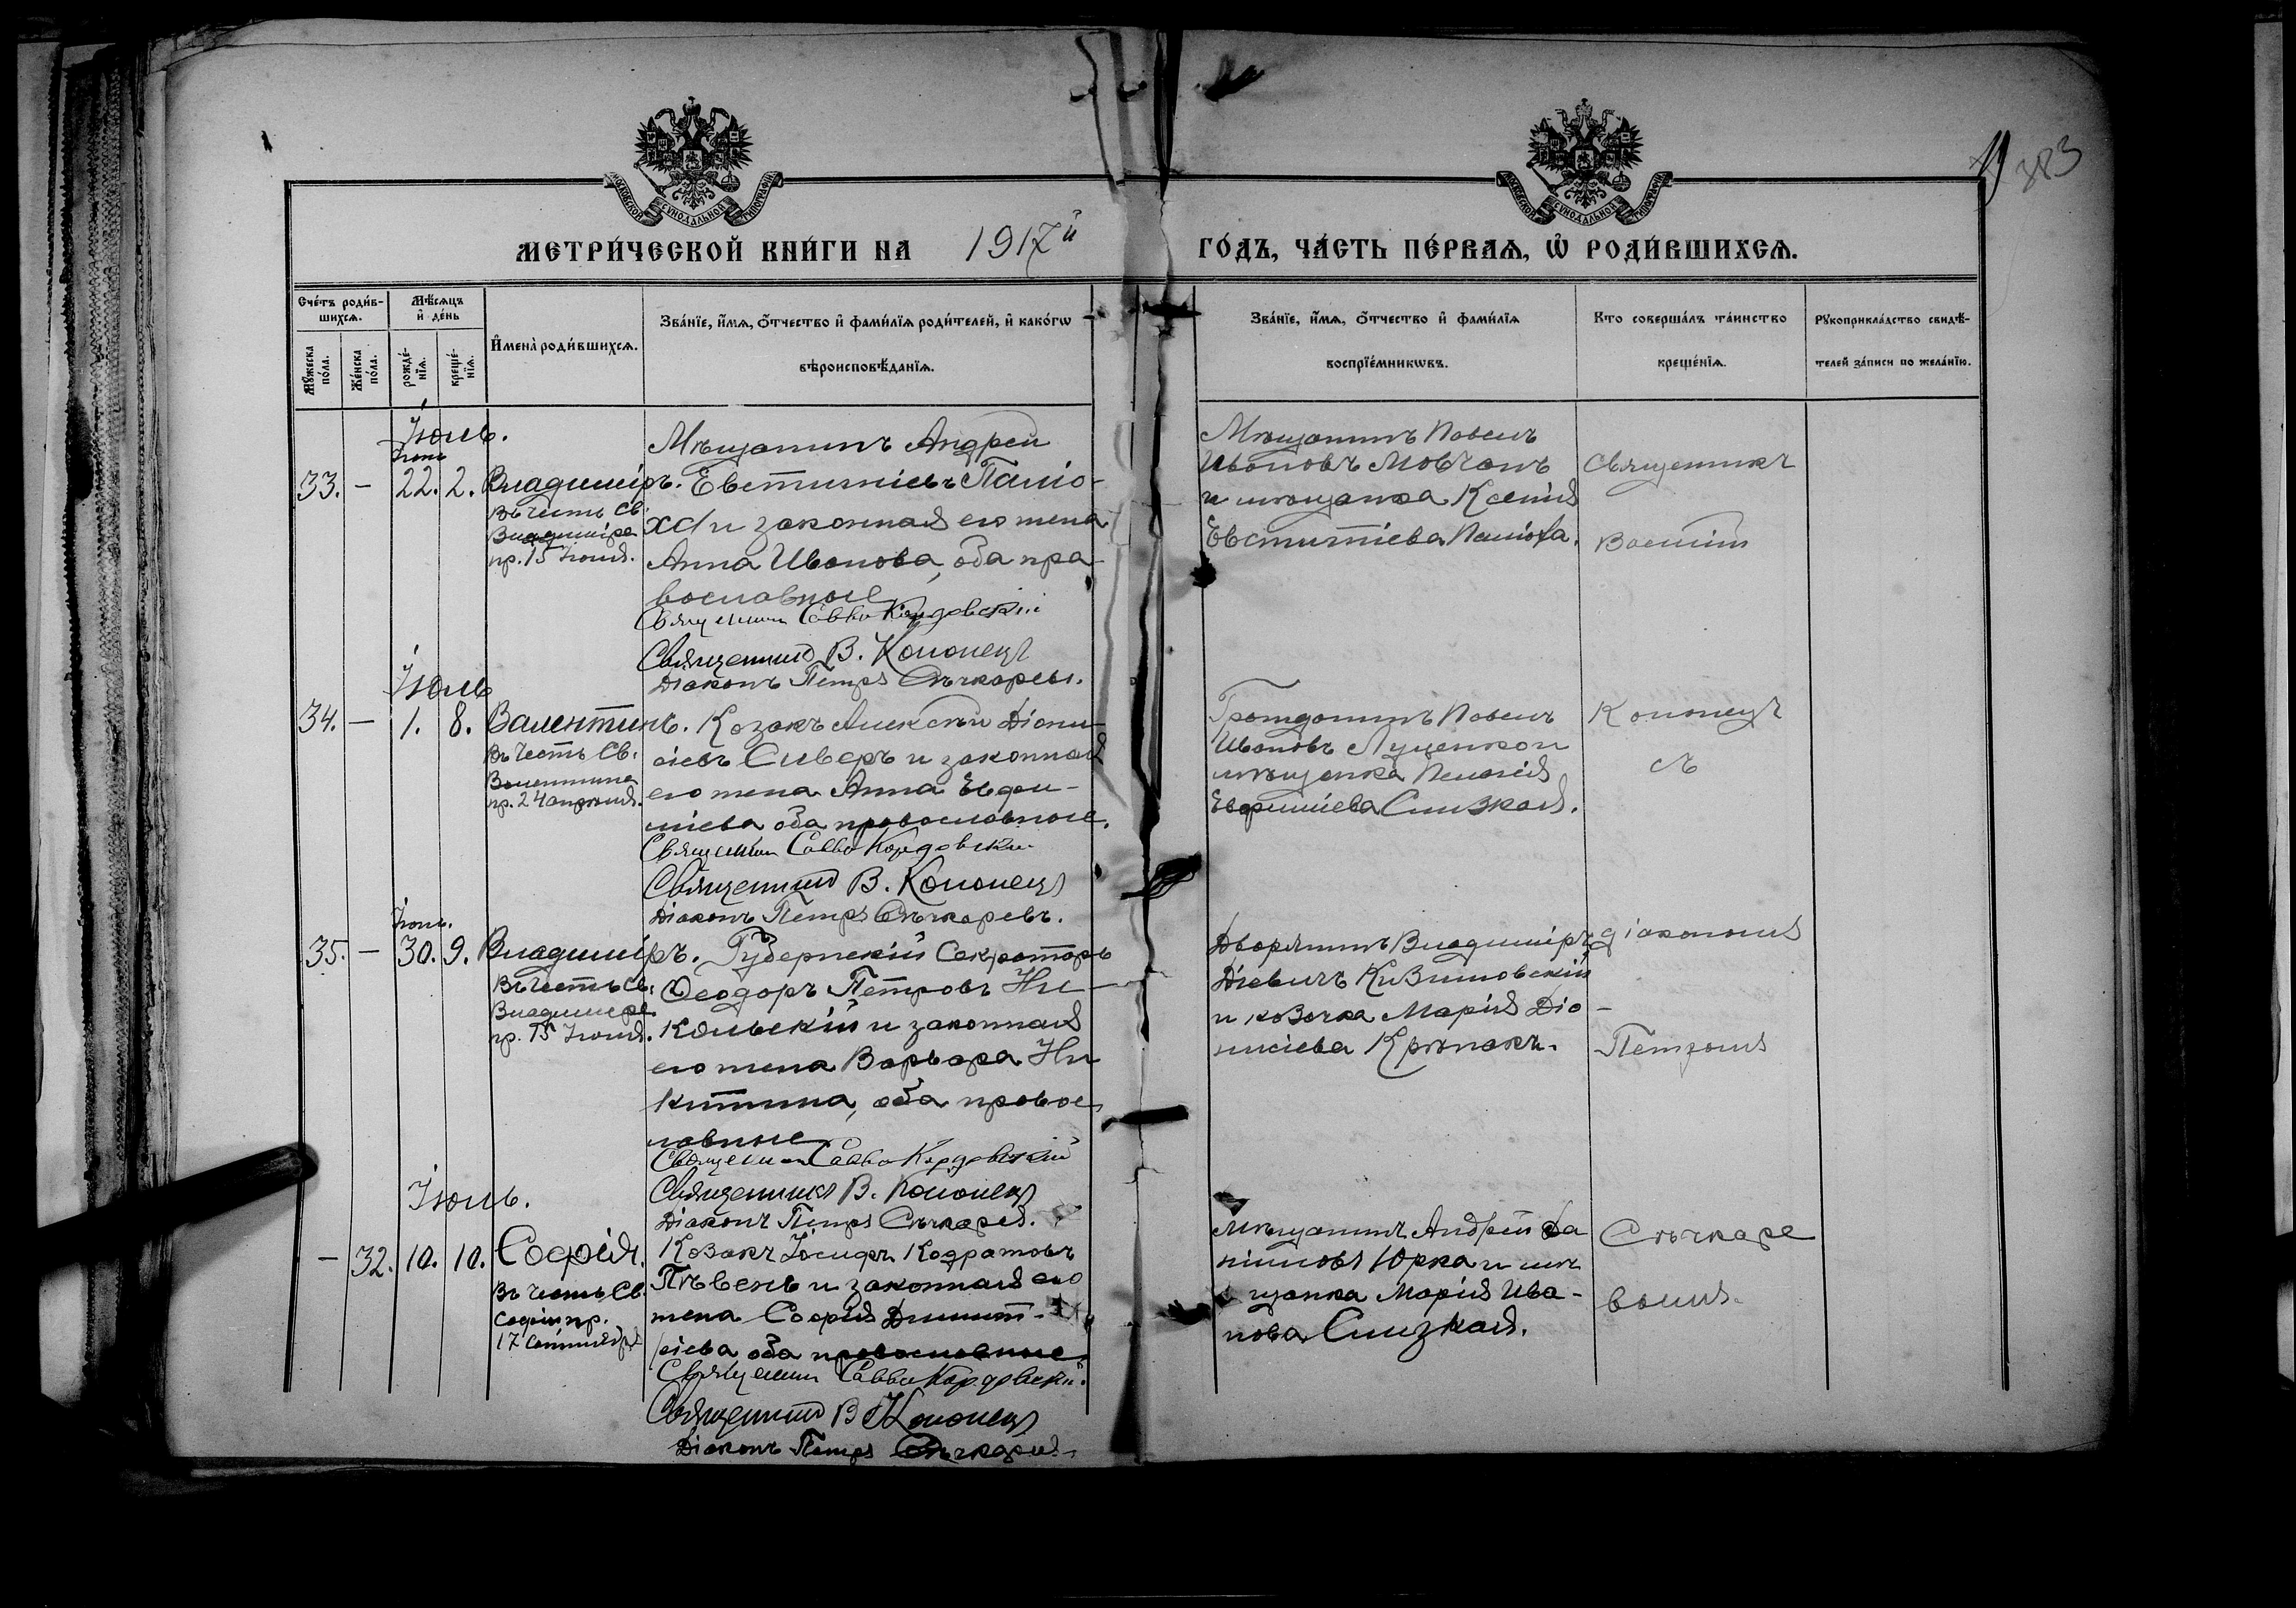 383
МОСКОВСКОЙ СУНОДАЛЬНОЙ ТИПОГРАФІИ
МОСКОВСКОЙ СУНОДАЛЬНОЙ ТИПОГРАФІИ
МЕТРИ́ЧЕСКОЙ КНИ́ГИ НА 1917й
ГО́ДЪ, ЧА́СТЬ ПЕ́РВАѦ, Ѡ҆ РОДИ́ВШИХСѦ.
Сче́тъ роди́в-
шихсѧ.
Мꙋ́жеска по́ла.
Же́нска по́ла.
Мѣ́сѧцъ
и҆ де́нь
рожде́-
нїѧ.
креще́-
нїѧ.
И҆мена̀ роди́вшихсѧ.
Зва́нїе, и҆́мѧ, ѻ҆́тчество и҆ фами́лїѧ роди́телей, и҆ како́гѡ
вѣроисповѣ́данїѧ.
Зва́нїе, и҆́мѧ, ѻ҆́тчество и҆ фами́лїѧ
воспрїе́мникѡвъ.
Кто соверша́лъ та́инство
креще́нїѧ.
Рꙋкоприкла́дство свидѣ́-
телей за́писи по жела́нїю.
Іюль.
Іюнь
33. — 22. 2. Владиміръ.
Въ честь Св.
Владиміра
пр. 15 Іюля.
Мѣщанинъ Андрей
Евстигніевъ Паліо-
ха и законная его жена
Анна Иванова, оба пра-
вославные
Священникъ Савва Кордовскій
Священникъ В. Кононецъ
Діаконъ Петръ Сѣчкаревъ.
Мѣщанинъ Павелъ
Ивановъ Мовчанъ
и мѣщанка Ксенія
Евстигніева Паліоха.
Священникъ
Василій
Іюль
34. — 1. 8. Валентинъ.
Въ честь Св.
Валентина
пр. 24 апрѣля.
Козакъ Алексѣй Діони-
сіевъ Сиверъ и законная
его жена Анна Евфи-
міева оба православные.
Священникъ Савва Кордовскій
Священникъ В. Кононецъ
Діаконъ Петръ Сѣчкаревъ.
Гражданинъ Павелъ
Ивановъ Луценко и
мѣщанка Пелагія
Евфиміева Слизкая.
Кононецъ
съ
Іюнь.
35. — 30. 9. Владиміръ.
Въ честь Св.
Владиміра
пр. 15 Іюля.
Губернскій Секретарь
Ѳеодоръ Петровъ Ни-
кольскій и законная
его жена Варвара Ни-
китина, оба правос-
лавные
Священникъ Савва Кордовскій
Священникъ В. Кононецъ
Діаконъ Петръ Сѣчкаревъ.
Дворянинъ Владиміръ
и козачка Марія Діо-
нисіева Крѣпакъ.
діакономъ
Петромъ
Іюль.
— 32. 10. 10. Софія.
Въ честь Св.
Софіи пр.
17 Сентября
Козакъ Іосифъ Кодратовъ
Пѣвень и законная его
жена Софія Димит-
ріева оба православные
Священникъ Савва Кордовскій
Священникъ В. Кононецъ
Діаконъ Петръ Сѣчкаревъ.
Мѣщанинъ Андрей Да
ніиловъ Юрка и мѣ
щанка Марія Ива-
нова Слизкая.
Сѣчкаре
вымъ.